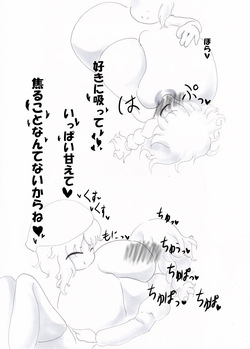 ほら♥
ぷっ♥
は
好きに吸って♥
いっぱい甘えて♥
焦ることなんてないからね♥
くす♥
くす♥
もにっ♥
ちゅっ♥
ちゅうっ♥
ちゅぱっ♥
ちゅぱ
ちゅぱっ♥